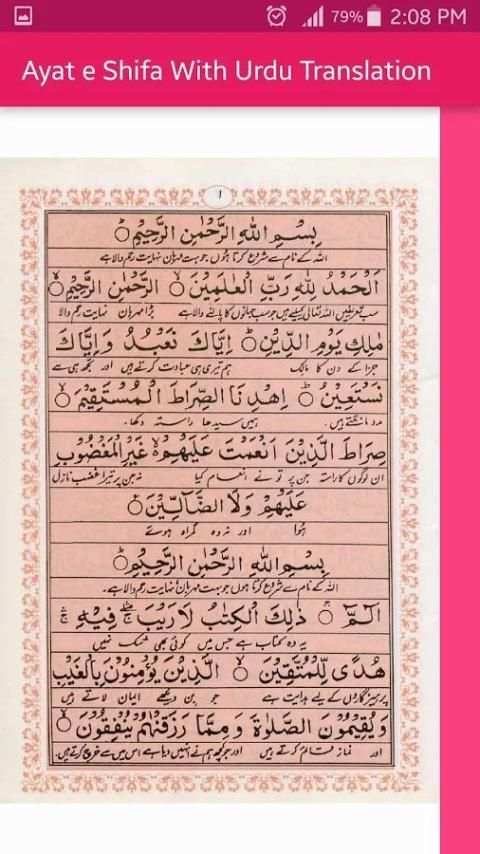 79% 2:08 PM
Ayat e Shifa With Urdu Translation
١
بِسْمِ اللهِ الرَّحْمٰنِ الرَّحِيْمِ
اللہ کے نام سے شروع کرتا ہوں جو بہت مہربان نہایت رحم والا ہے
اَلْحَمْدُ لِلّٰهِ رَبِّ الْعٰلَمِيْنَ الرَّحْمٰنِ الرَّحِيْمِ
سب تعریفیں اللہ تعالیٰ کیلیے ہیں جو سب جہانوں کا پالنے والا ہے بڑا مہربان نہایت رحم والا
مٰلِكِ يَوْمِ الدِّيْنِ اِيَّاكَ نَعْبُدُ وَاِيَّاكَ
جزا کے دن کا مالک ہم تیری ہی عبادت کرتے ہیں اور تجھ ہی سے
نَسْتَعِيْنُ اِهْدِنَا الصِّرَاطَ الْمُسْتَقِيْمَ
مدد مانگتے ہیں۔ ہمیں سیدھا راستہ دکھا۔
صِرَاطَ الَّذِيْنَ اَنْعَمْتَ عَلَيْهِمْ غَيْرِ الْمَغْضُوْبِ
ان لوگوں کا راستہ جن پر تو نے انعام کیا نہ جن پر تیرا غضب نازل
عَلَيْهِمْ وَلَا الضَّآلِّيْنَ
ہوا اور نہ وہ گمراہ ہوئے
بِسْمِ اللهِ الرَّحْمٰنِ الرَّحِيْمِ
اللہ کے نام سے شروع کرتا ہوں جو بہت مہربان نہایت رحم والا ہے۔
الٓمّٓ ذٰلِكَ الْكِتٰبُ لَا رَيْبَ فِيْهِ
یہ وہ کتاب ہے جس میں کوئی بھی شک نہیں
هُدًى لِّلْمُتَّقِيْنَ الَّذِيْنَ يُؤْمِنُوْنَ بِالْغَيْبِ
پرہیزگاروں کے لیے ہدایت ہے جو بن دیکھے ایمان لاتے ہیں
وَيُقِيْمُوْنَ الصَّلٰوةَ وَمِمَّا رَزَقْنٰهُمْ يُنْفِقُوْنَ
اور نماز قائم کرتے ہیں اور جو کچھ ہم نے انہیں دیا ہے اس میں سے خرچ کرتے ہیں۔